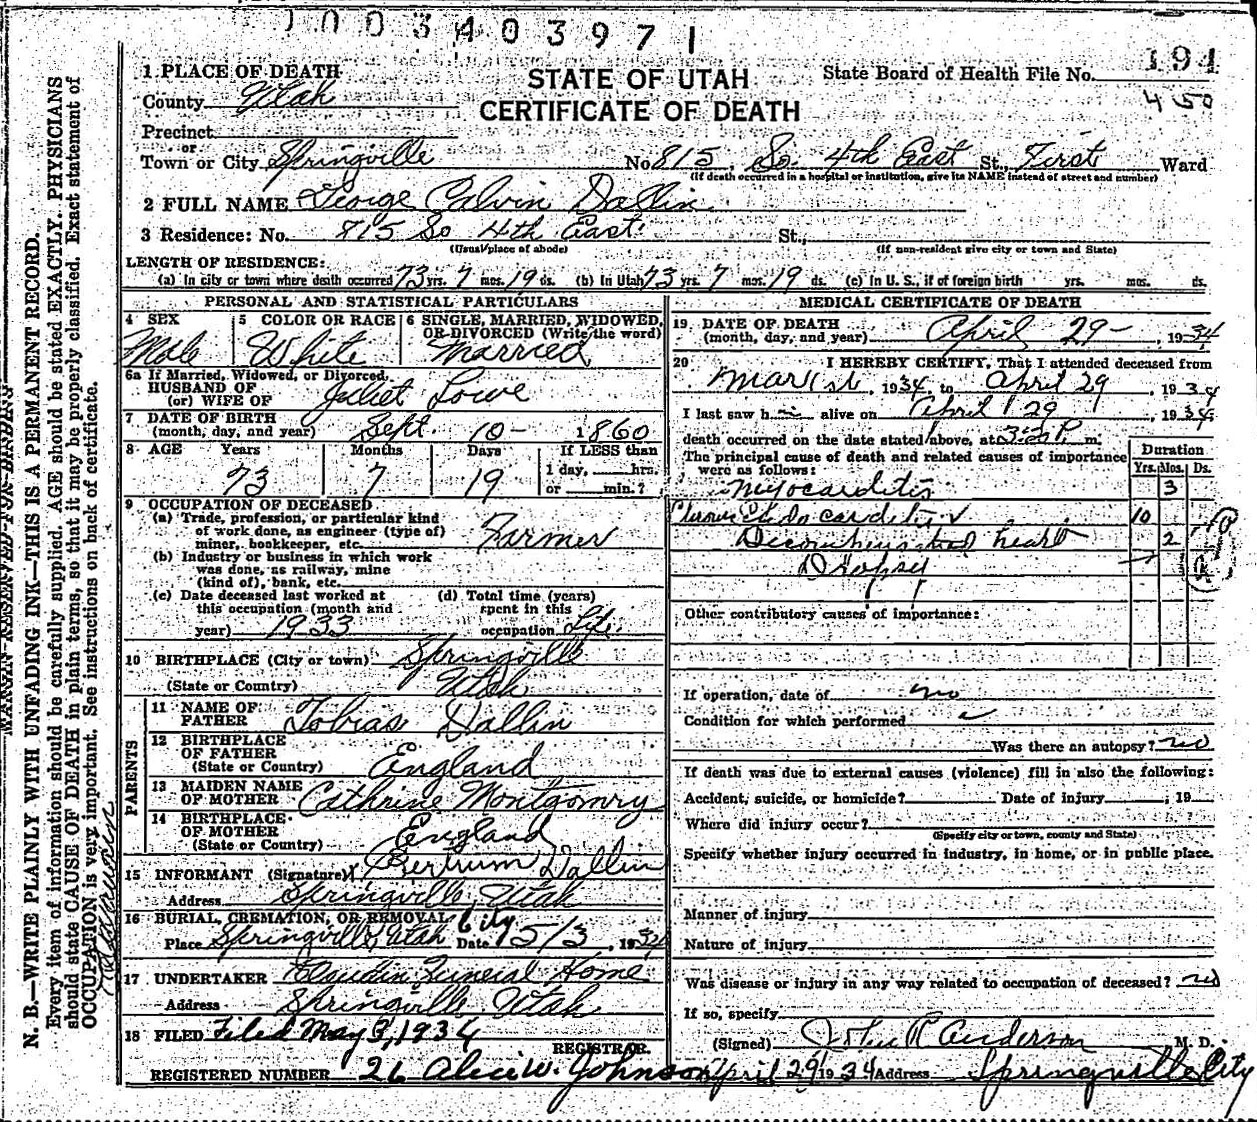 1003403971
STATE OF UTAH
CERTIFICATE OF DEATH
State Board of Health File No. 191
450
1 PLACE OF DEATH
County Utah
Precinct
or
Town or City Springville No. 815 So. 4th East St., First Ward
(If death occurred in a hospital or institution, give its NAME instead of street and number)
2 FULL NAME George Calvin Dallin
3 Residence: No. 815 So 4th East St.,
(Usual place of abode) (If non-resident give city or town and State)
LENGTH OF RESIDENCE:
(a) In city or town where death occurred 73 yrs. 7 mos. 19 ds. (b) In Utah 73 yrs. 7 mos. 19 ds. (c) In U. S., if of foreign birth yrs. mos. ds.
PERSONAL AND STATISTICAL PARTICULARS
4 SEX Male
5 COLOR OR RACE White
6 SINGLE, MARRIED, WIDOWED, OR DIVORCED (Write the word) Married
6a If Married, Widowed, or Divorced
HUSBAND OF
(or) WIFE OF Juliet Lowe
7 DATE OF BIRTH
(month, day, and year) Sept. 10- 1860
8 AGE Years Months Days If LESS than
73 7 19 1 day, hrs.
or min.?
9 OCCUPATION OF DECEASED
(a) Trade, profession, or particular kind
of work done, as engineer (type of)
miner, bookkeeper, etc. Farmer
(b) Industry or business in which work
was done, as railway, mine
(kind of), bank, etc.
(c) Date deceased last worked at
this occupation (month and
year) 1933
(d) Total time (years)
spent in this
occupation Life.
10 BIRTHPLACE (City or town) Springville
(State or Country) Utah
PARENTS
11 NAME OF
FATHER Tobias Dallin
12 BIRTHPLACE
OF FATHER
(State or Country) England
13 MAIDEN NAME
OF MOTHER Cathrine Montgomry
14 BIRTHPLACE
OF MOTHER
(State or Country) England
15 INFORMANT (Signature) x Bertrum Dallin
Address Springville, Utah
16 BURIAL, CREMATION, OR REMOVAL City
Place Springville, Utah Date 5/3, 1934
17 UNDERTAKER Claudin Funeral Home
Address Springville, Utah
18 FILED Filed May 3, 1934
REGISTRAR.
REGISTERED NUMBER 26 Alice W. Johnson
MEDICAL CERTIFICATE OF DEATH
19 DATE OF DEATH
(month, day, and year) April 29- , 1934
20 I HEREBY CERTIFY, That I attended deceased from
Mar 1st, 1934 to April 29, 1934
I last saw h alive on April 29, 1934
death occurred on the date stated above, at P m.
The principal cause of death and related causes of importance
were as follows:
Duration
Yrs. Mos. Ds.
Myocarditis 3
Chronic Endocarditis 10
Decompensated heart 2
Dropsy
Other contributory causes of importance:
If operation, date of no
Condition for which performed
Was there an autopsy? no
If death was due to external causes (violence) fill in also the following:
Accident, suicide, or homicide? Date of injury , 19
Where did injury occur?
(Specify city or town, county and State)
Specify whether injury occurred in industry, in home, or in public place.
Manner of injury
Nature of injury
Was disease or injury in any way related to occupation of deceased? no
If so, specify
(Signed) John R Anderson M. D.
April 29 1934 Address Springville City
MARGIN RESERVED FOR BINDING
N. B.—WRITE PLAINLY WITH UNFADING INK—THIS IS A PERMANENT RECORD.
Every item of information should be carefully supplied. AGE should be stated EXACTLY. PHYSICIANS
should state CAUSE OF DEATH in plain terms, so that it may be properly classified. Exact statement of
OCCUPATION is very important. See instructions on back of certificate.